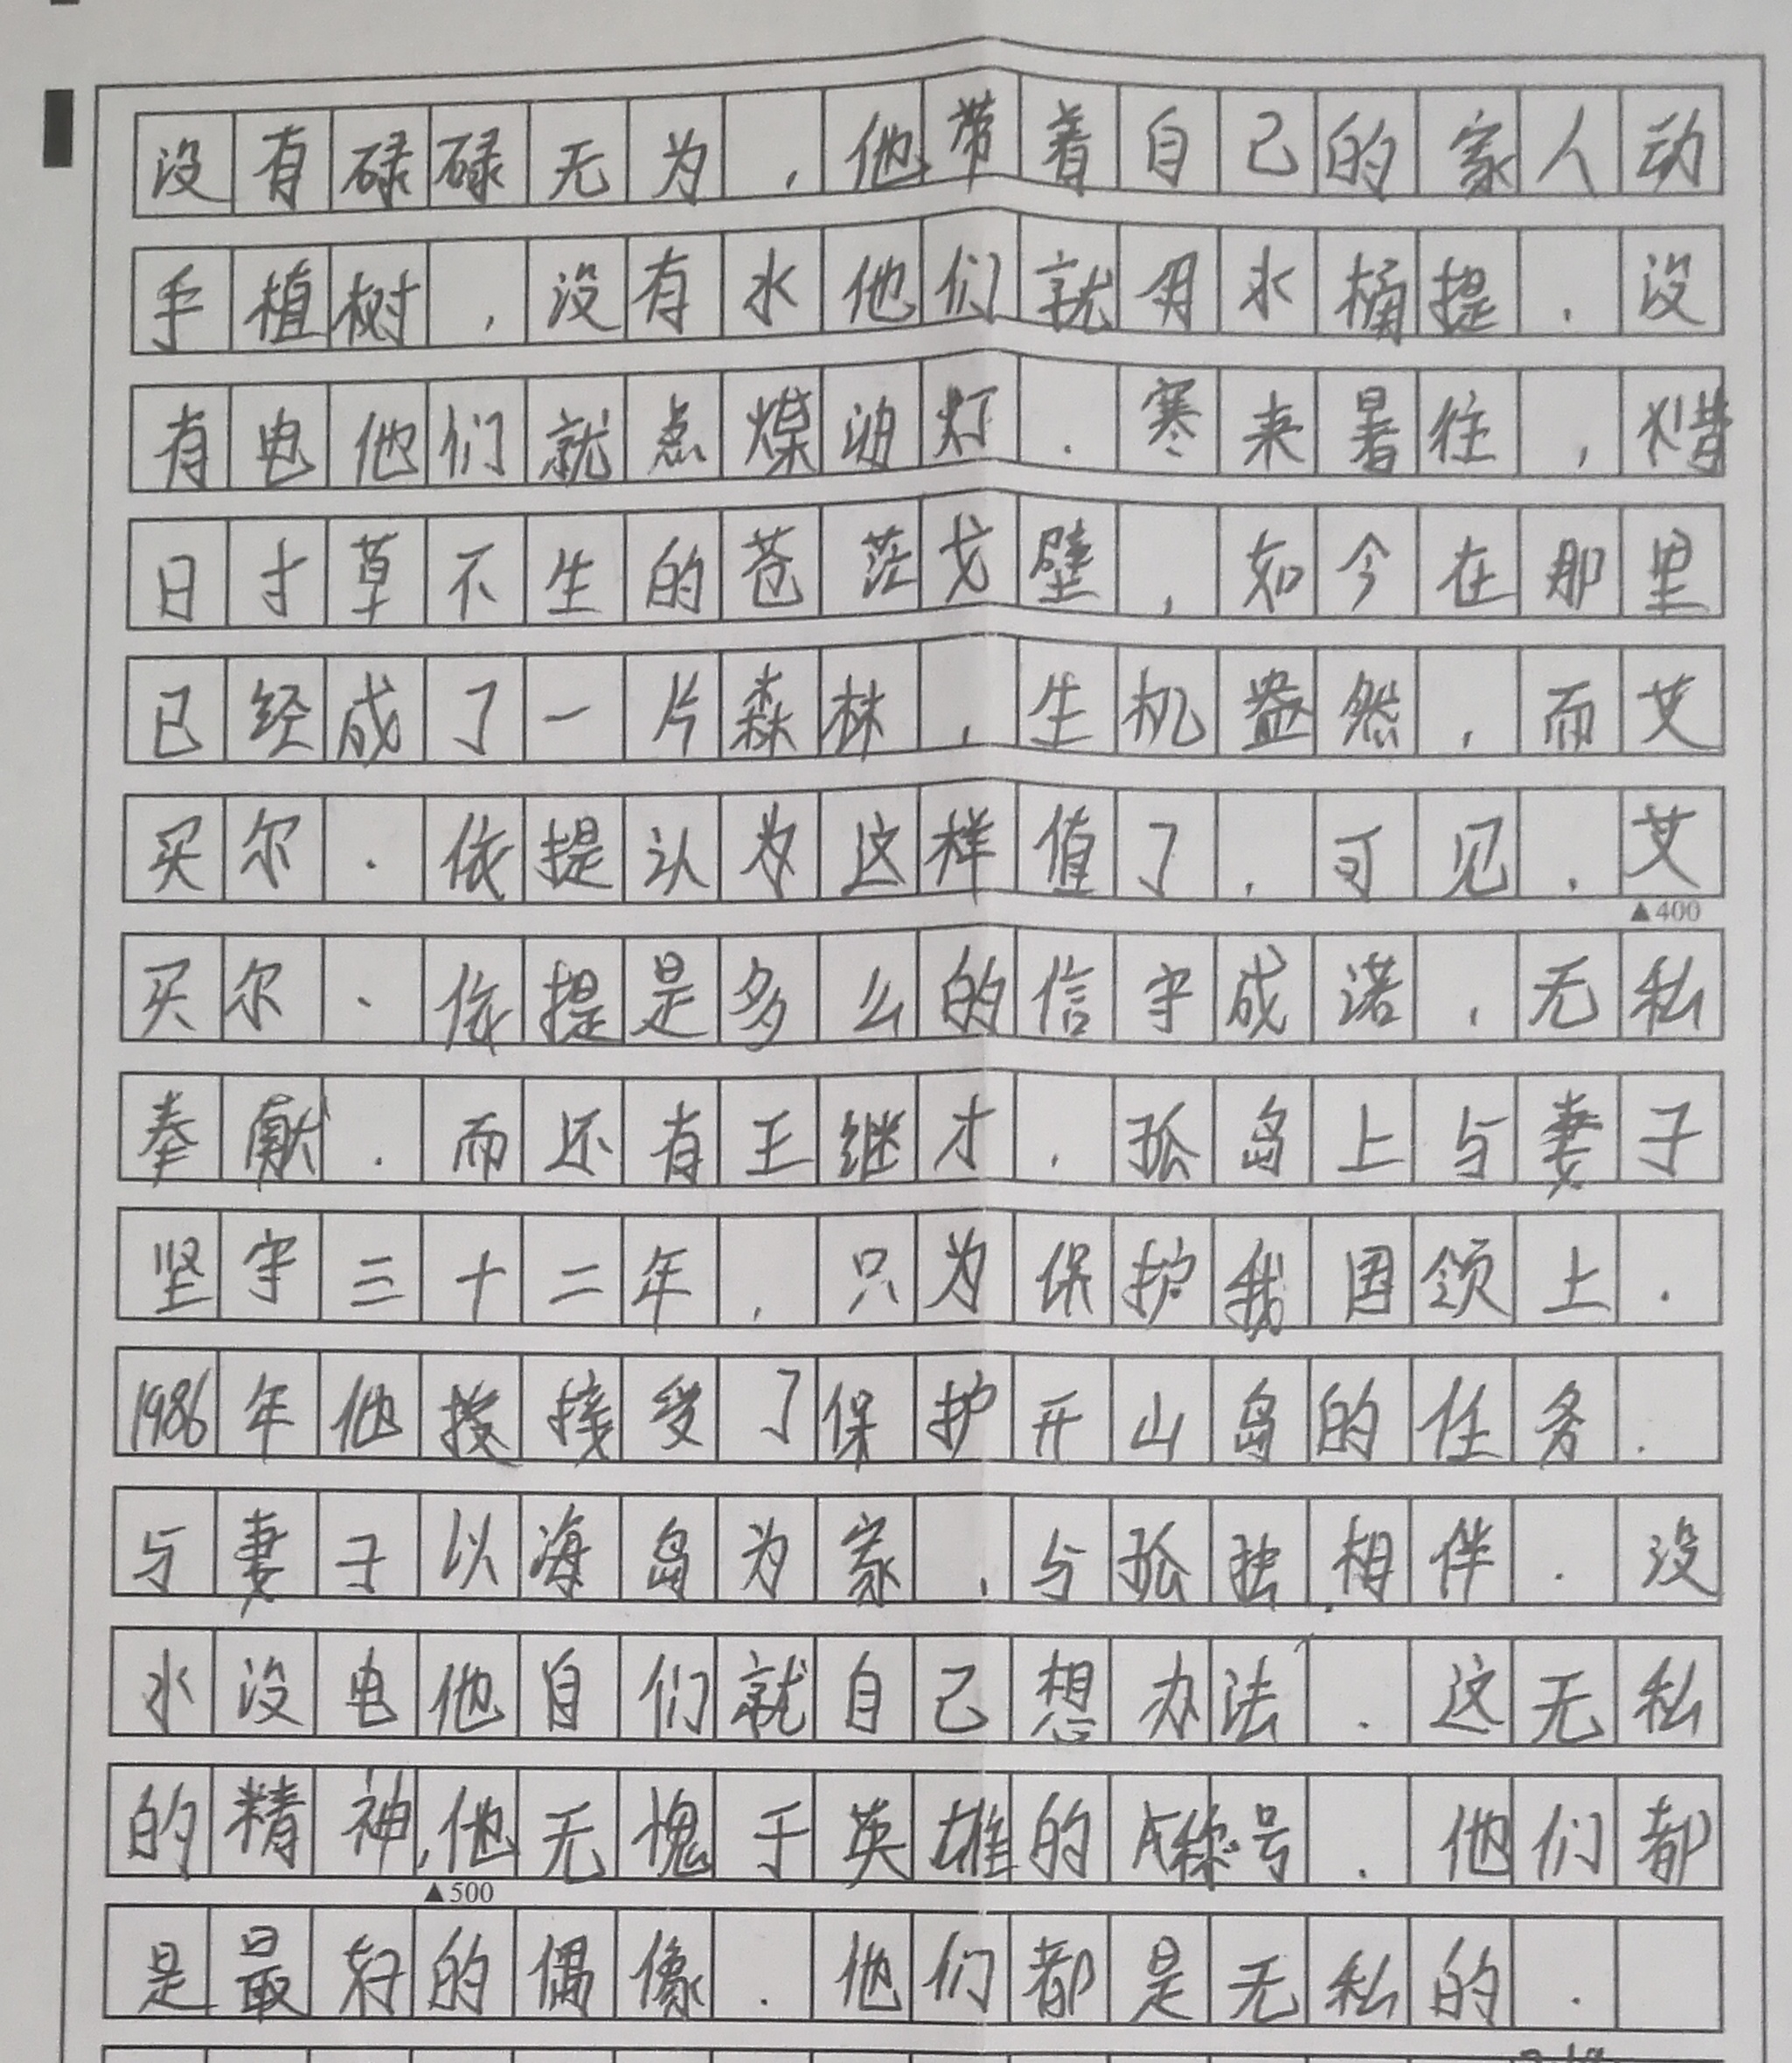 没有碌碌无为,他带着自己的家人动
手植树,没有水他们就用水桶提.没
有电他们就点煤油灯.寒来暑往,惜
日寸草不生的苍茫戈壁,如今在那里
已经成了一片森林,生机盎然,而艾
买尔·依提认为这样值了,可见,艾
▲400
买尔·依提是多么的信守成诺,无私
奉献.而还有王继才.孤岛上与妻子
坚守三十二年,只为保护我国领土.
1986年他接接受了保护开山岛的任务.
与妻子以海岛为家,与孤独相伴.没
水没电他自们就自己想办法.这无私
的精神,他无愧于英雄的称号.他们都
▲500
是最好的偶像.他们都是无私的.